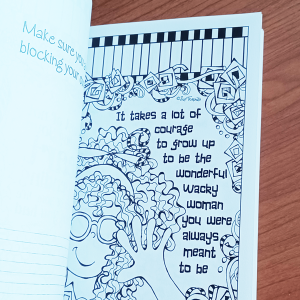 Make sure you
blocking your
It takes a lot of
courage
to grow up
to be the
wonderful
wacky
woman
you were
always
meant
to be